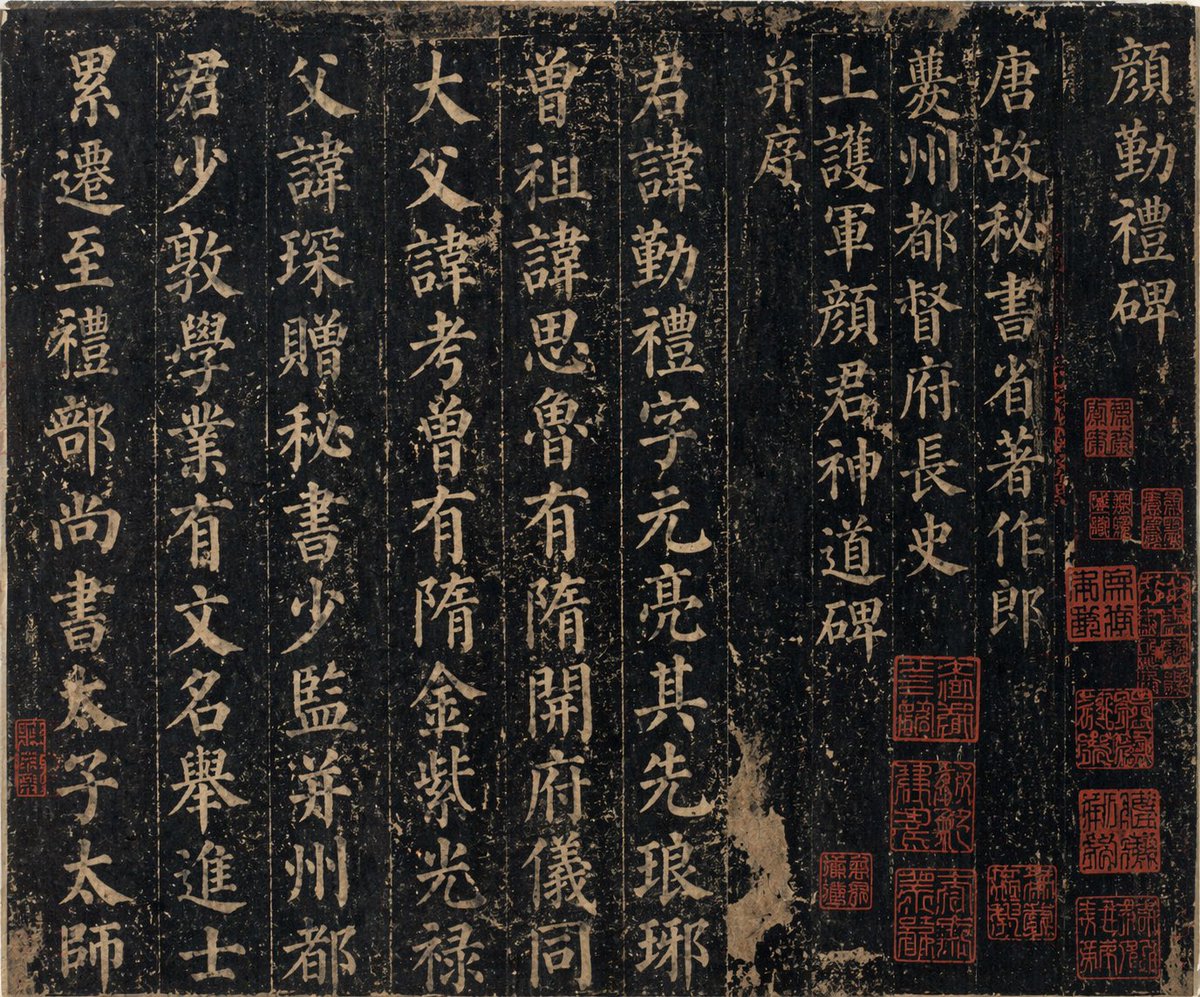 顔勤禮碑
唐故秘書省著作郎
䕫州都督府長史
上護軍顔君神道碑
并序
君諱勤禮字元亮其先琅琊
曽祖諱思魯有隋開府儀同
大父諱考曽有隋金紫光禄
父諱琛贈秘書少監并州都
君少敦學業有文名舉進士
累遷至禮部尚書太子太師